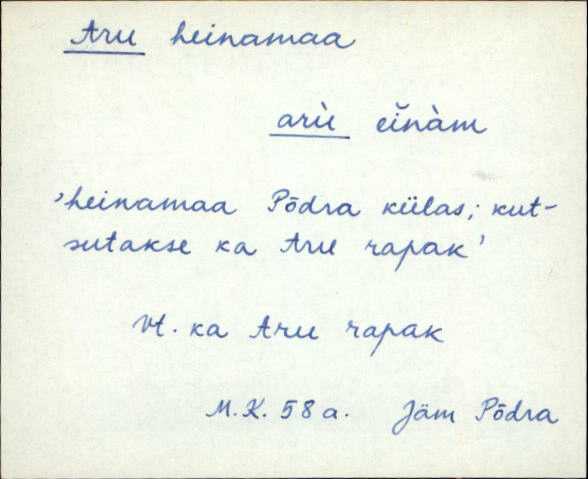 Aru heinamaa
arù eĭnàm
'heinamaa Põdra külas; kut-
sutakse ka Aru rapak'
vt. ka Aru rapak
M.K. 58 a. Jäm Põdra